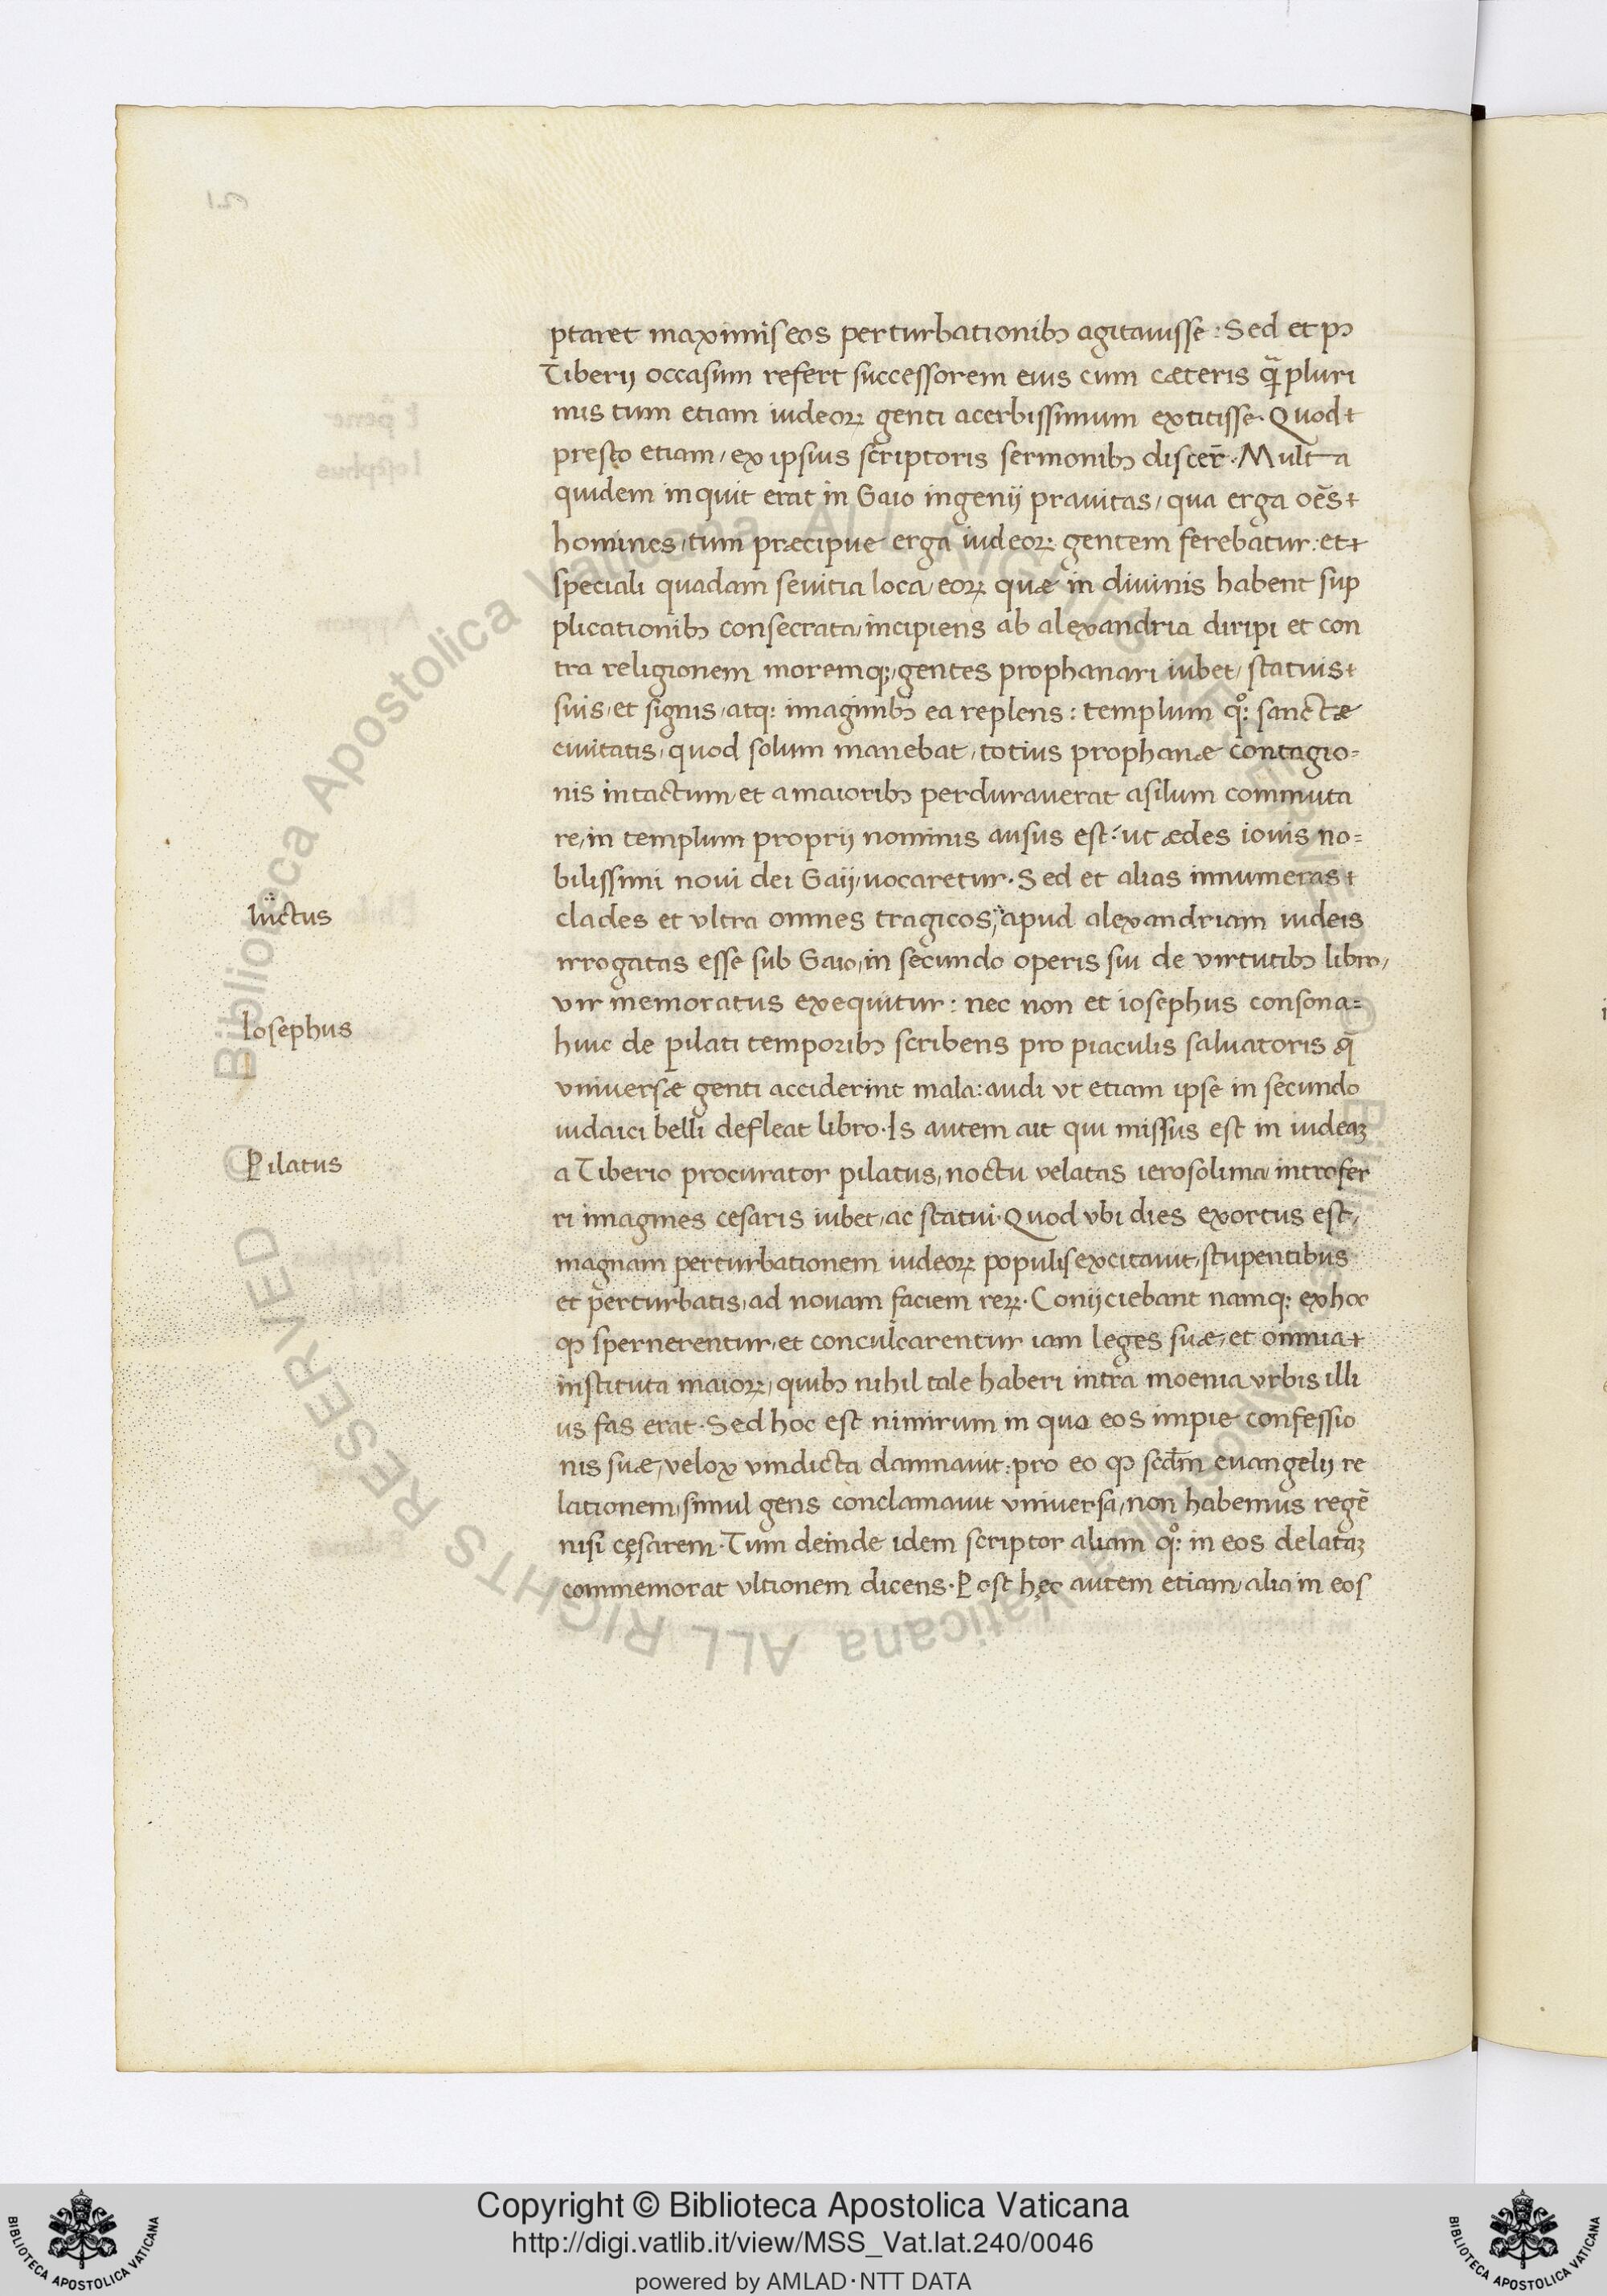 ptaret maximis eos perturbationibꝫ agitauisse: Sed et pꝰ
Tiberij occasum refert successorem eius cum cæteris q̃pluri
mis tum etiam iudeoꝝ genti acerbissimum extitisse. Quod
presto etiam, ex ipsius scriptoris sermonibꝫ discer̃. Multa
quidem inquit erat in Gaio ingenij prauitas, qua erga oēs
homines, tum præcipue erga iudeoꝝ gentem ferebatur: et
speciali quadam seuitia loca, eoꝝ quæ in diuinis habent sup
plicationibꝫ consecrata, incipiens ab alexandria diripi et con
tra religionem moremqꝫ, gentes prophanari iubet, statuis
suis, et signis, atqꝫ imaginibꝫ ea replens: templum qº: sanctæ
ciuitatis, quod solum manebat, totius prophanæ contagio=
nis intactum, et a maioribꝫ perdurauerat asilum commuta
re, in templum proprij nominis ausus est: ut ædes iouis no=
bilissimi noui dei Gaij, uocaretur. Sed et alias innumeras
luctus
clades et vltra omnes tragicos, apud alexandriam iudeis
irrogatas esse sub Gaio, in secundo operis sui de virtutibꝫ libro,
vir memoratus exequitur: nec non et iosephus consona=
Iosephus
huic de pilati temporibꝫ scribens pro piaculis saluatoris q̄
vniuersæ genti acciderint mala: audi vt etiam ipse in secundo
iudaici belli defleat libro. Is autem ait qui missus est in iudeaꝫ
Pilatus
a Tiberio procurator pilatus, noctu velatas ierosolima, introfer
ri imagines cesaris iubet, ac statui. Quod vbi dies exortus est,
magnam perturbationem iudeoꝝ populis excitauit, stupentibus
et perturbatis, ad nouam faciem reꝝ. Conijciebant namqꝫ ex hoc
ꝙ spernerentur, et conculcarentur iam leges suæ, et omnia
instituta maioꝝ, quibꝫ nihil tale haberi intra moenia vrbis illi
us fas erat. Sed hoc est nimirum in quo eos impie confessio
nis suæ, velox vindicta damnauit: pro eo ꝙ scd̃m euangelij re
lationem, simul gens conclamauit vniuersa, non habemus regē
nisi cęsarem. Tum deinde idem scriptor aliam qº: in eos delataꝫ
commemorat vltionem dicens. Post hęc autem etiam, alia in eos
Copyright © Biblioteca Apostolica Vaticana
http://digi.vatlib.it/view/MSS_Vat.lat.240/0046
powered by AMLAD·NTT DATA
BIBLIOTECA APOSTOLICA VATICANA
BIBLIOTECA APOSTOLICA VATICANA
© Biblioteca Apostolica Vaticana ALL RIGHTS RESERVED
© Biblioteca Apostolica Vaticana ALL RIGHTS RESERVED